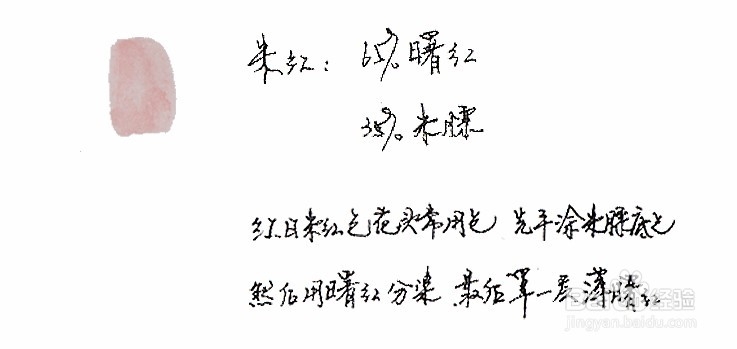 朱红：65%曙红
35%朱膘
红日朱红色花头常用色 先平涂朱膘底色
然后用曙红分染 最后罩一层薄曙红
Baidu经验
jingyan.baidu.com